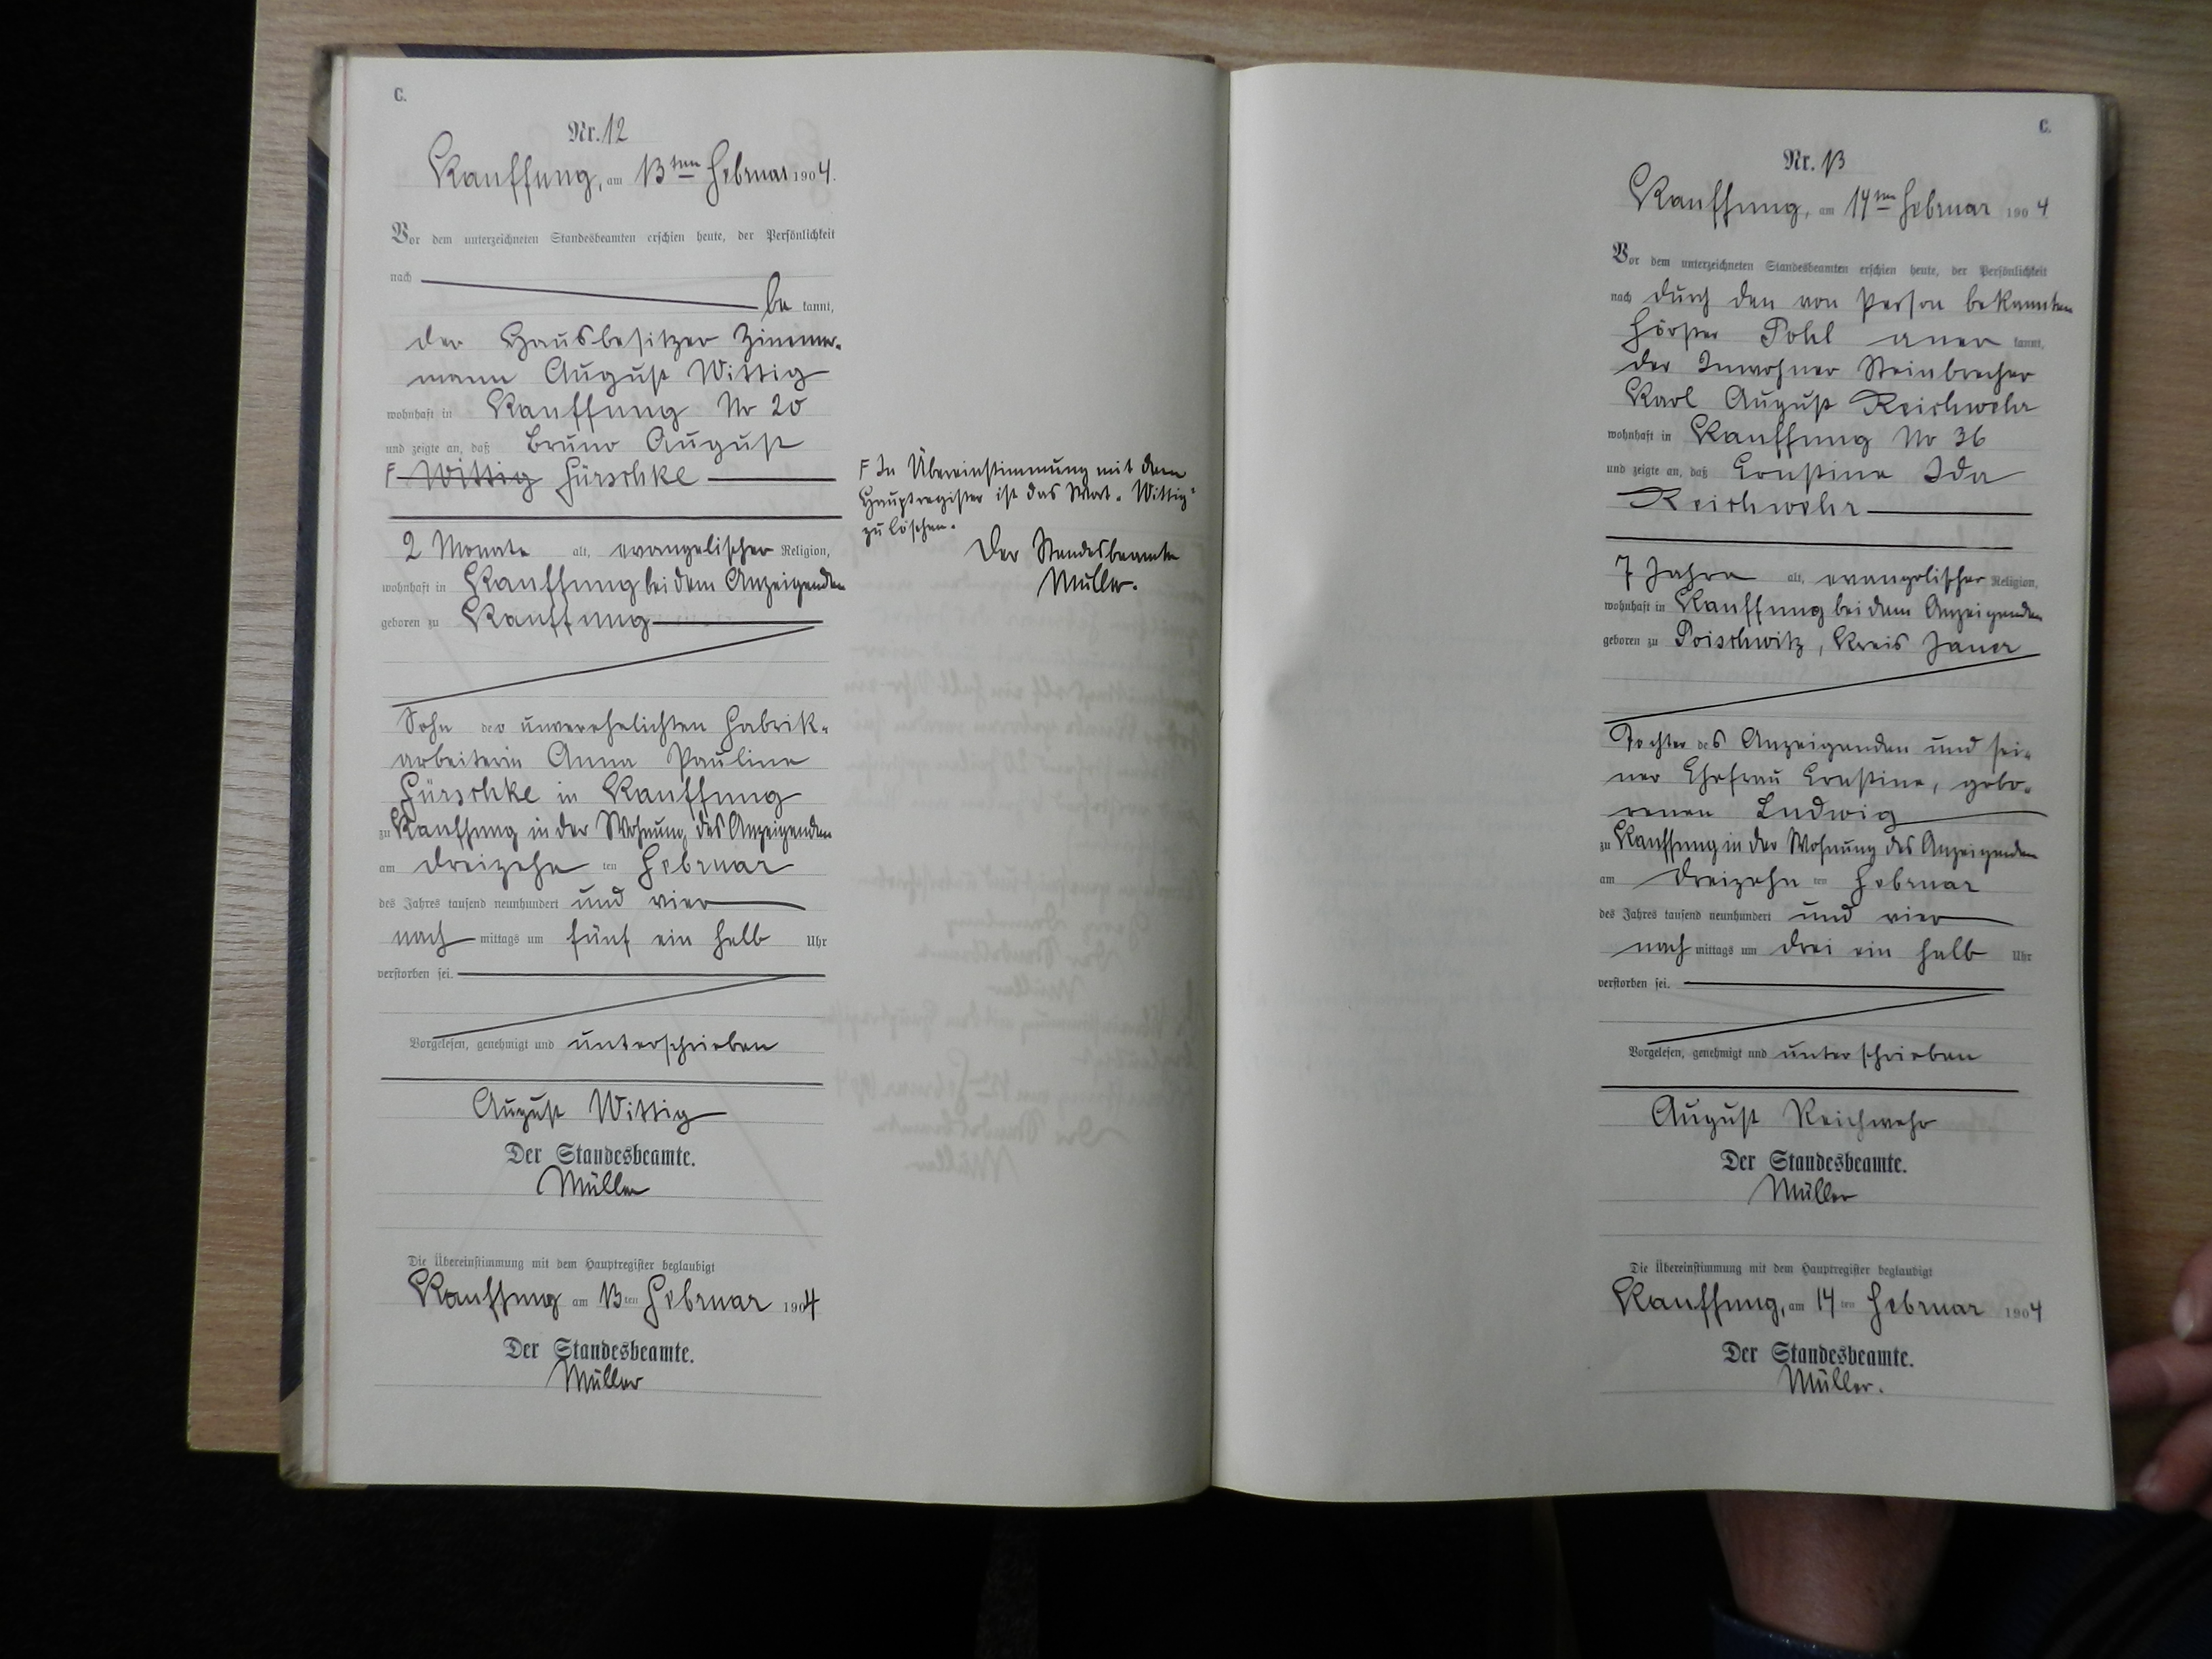 C.
Nr. 12
Kauffung, am 13ten Februar 1904.
Vor dem unterzeichneten Standesbeamten erschien heute, der Persönlichkeit
nach
be kannt,
der Hausbesitzer Zimmer-
mann August Wittig
wohnhaft in Kauffung No 20
und zeigte an, daß Bruno August
F Wittig Fürschke
2 Monate alt, evangelischer Religion,
wohnhaft in Kauffung bei dem Anzeigenden
geboren zu Kauffung
Sohn der unverehelichten Fabrik-
arbeiterin Anna Pauline
Fürschke in Kauffung
zu Kauffung in der Wohnung des Anzeigenden
am dreizehn ten Februar
des Jahres tausend neunhundert und vier
nach mittags um fünf ein halb Uhr
verstorben sei.
Vorgelesen, genehmigt und unterschrieben
August Wittig
Der Standesbeamte.
Müller
Die Übereinstimmung mit dem Hauptregister beglaubigt
Kauffung am 13ten Februar 1904
Der Standesbeamte.
Müller
F In Übereinstimmung mit dem
Hauptregister ist das Wort "Wittig"
zu löschen.
Der Standesbeamte
Müller.
C.
Nr. 13
Kauffung, am 14ten Februar 1904
Vor dem unterzeichneten Standesbeamten erschien heute, der Persönlichkeit
nach durch den von Person bekannten
Förster Pohl aner kannt,
der Inwohner Steinbrecher
Karl August Reichwehr
wohnhaft in Kauffung No 36
und zeigte an, daß Ernstine Ida
Reichwehr
7 Jahre alt, evangelischer Religion,
wohnhaft in Kauffung bei dem Anzeigenden
geboren zu Poischwitz, Kreis Jauer
Tochter des Anzeigenden und sei-
ner Ehefrau Ernstine, gebo-
renen Ludwig
zu Kauffung in der Wohnung des Anzeigenden
am dreizehn ten Februar
des Jahres tausend neunhundert und vier
nach mittags um drei ein halb Uhr
verstorben sei.
Vorgelesen, genehmigt und unterschrieben
August Reichwehr
Der Standesbeamte.
Müller
Die Übereinstimmung mit dem Hauptregister beglaubigt
Kauffung, am 14ten Februar 1904
Der Standesbeamte.
Müller.